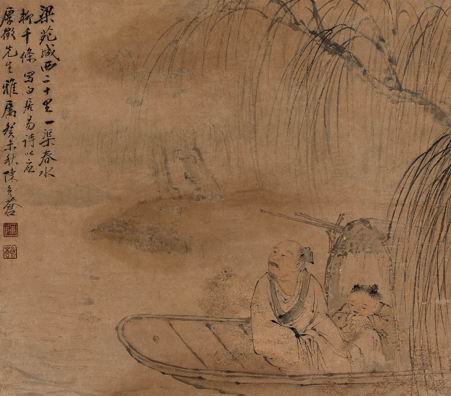 梁苑城西二十里一渠春水
柳千條寫白居易詩以应
先生雅屬癸未秋陳